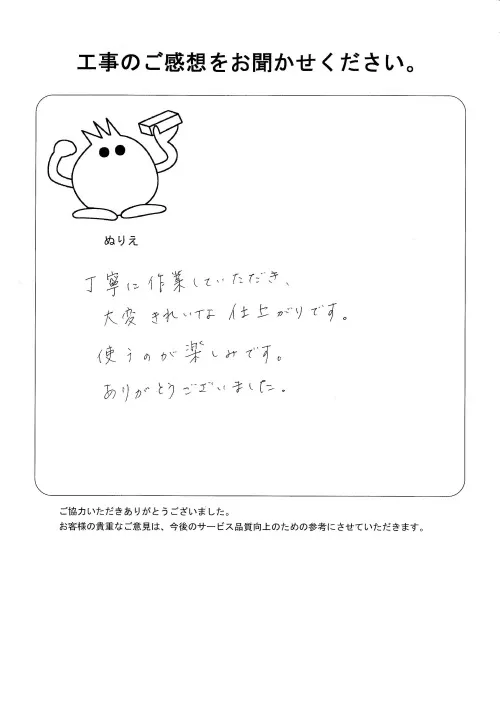 工事のご感想をお聞かせください。
ぬりえ
丁寧に作業していただき、
大変きれいな仕上がりです。
使うのが楽しみです。
ありがとうございました。
ご協力いただきありがとうございました。
お客様の貴重なご意見は、今後のサービス品質向上のための参考にさせていただきます。